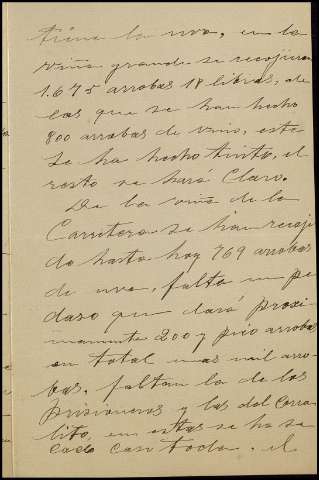 tiene la uva, en la
viña grande se recojieron
1.675 arrobas 18 libras, de
las que se han hecho
800 arrobas de vino, este
se ha hecho tinto, el
resto se hará Claro.
De la viña de la
Carretera se han recoji
do hasta hoy 769 arrobas
de uva, falta un pe
daso que dará proxi
mamente 200 y pico arrobas
en total unas mil arro
bas, faltan la de los
Prisioneros y las del Corra
lito, en estas se ha se
cado casi toda. el